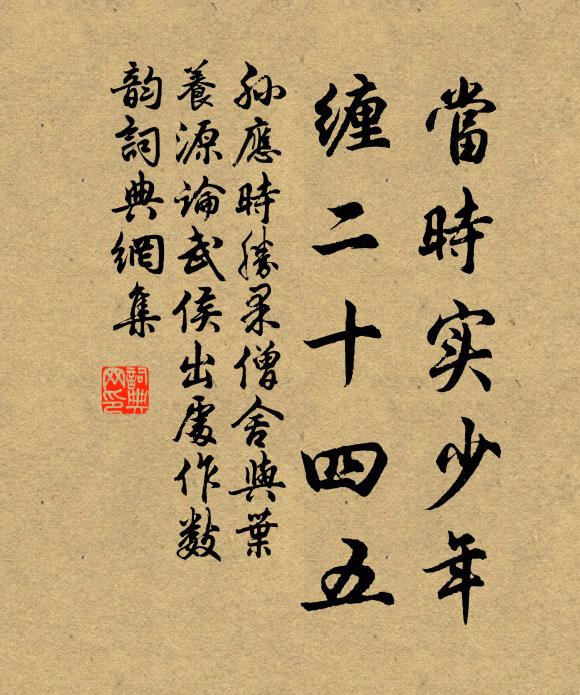 當時实少年
纏二十四五
孙應時勝果僧舍與葉
養源论武侯出處作數
韵詞典網集
詞典网印